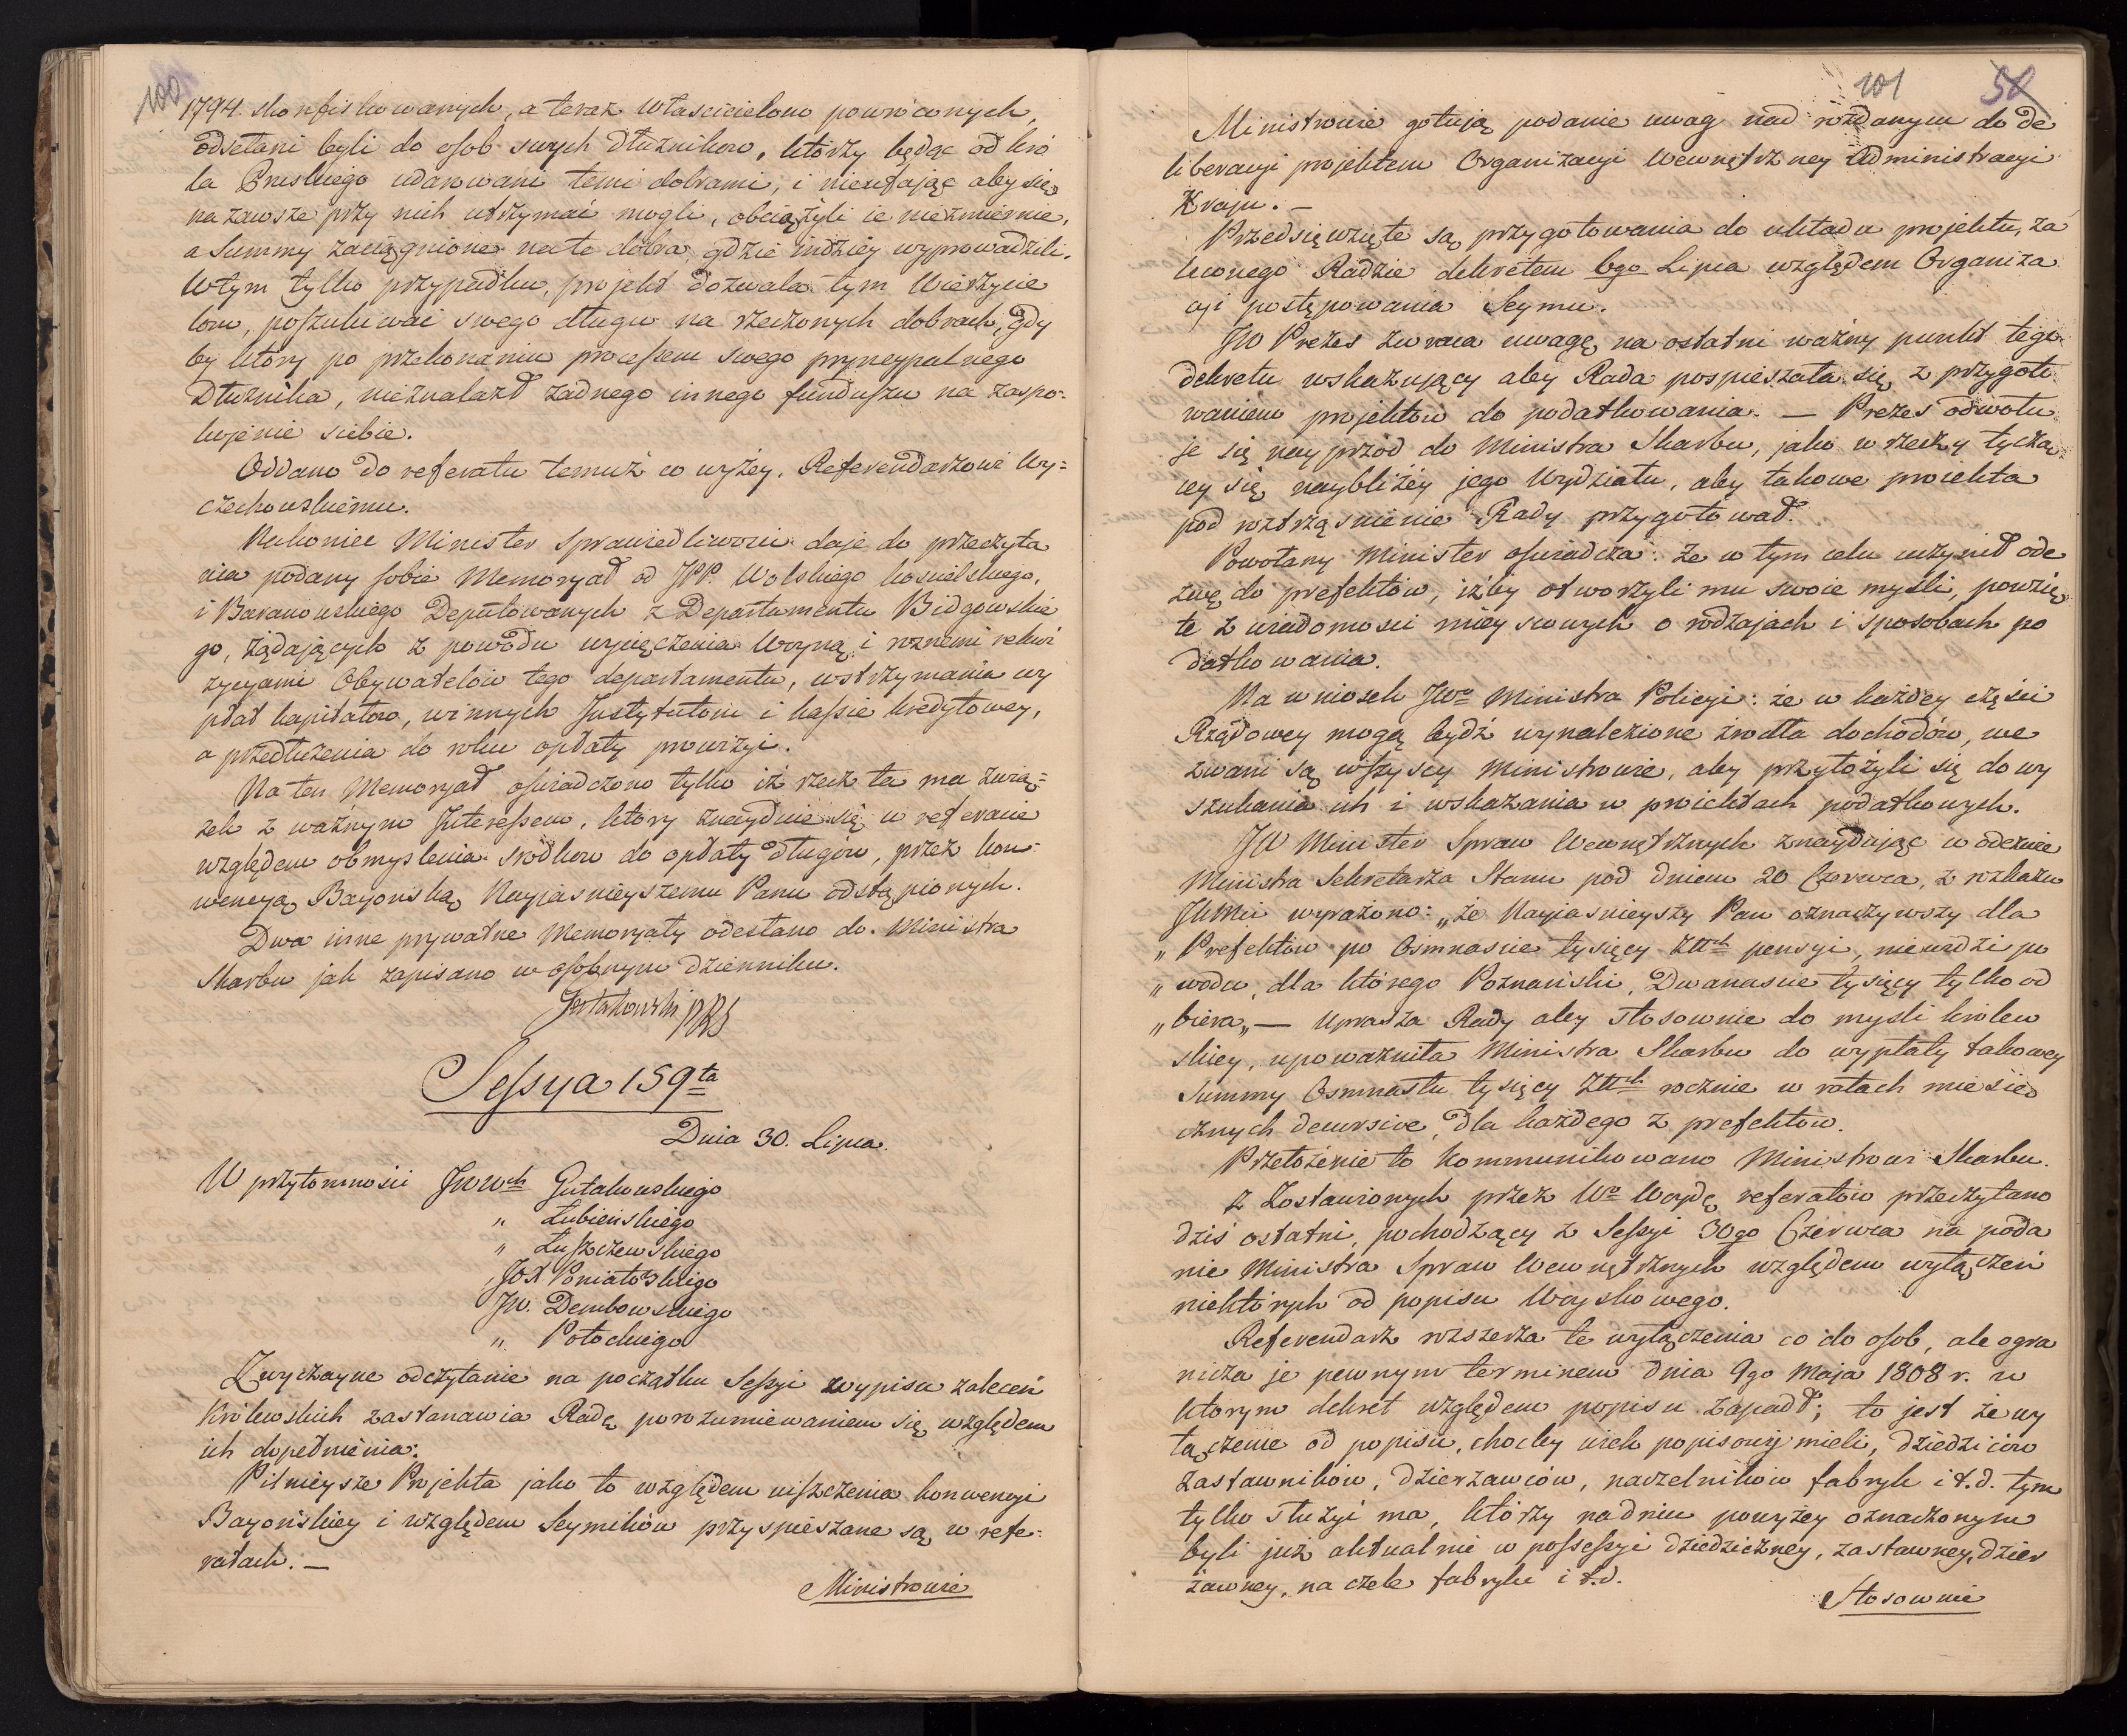 100
1794. skonfiskowanych, a teraz Właścicielom powróconych,
odsełani byli do osob swych dłużnikow, którzy będąc od kró
la Pruskiego udarowani temi dobrami, i nieufając aby się
na zawsze przy nich utrzymać mogli, obciążyli ie niezmiernie,
a Summy zaciągnione na te dobra gdzie indziéy wyprowadzili.
W tym tylko przypadku, projekt dozwala tym Wierzycie
lom, poszukiwać swego długu na rzeczonych dobrach, gdy
by który po przekonaniu processem swego pryncypalnego
Dłużnika, nieznalazł żadnego innego funduszu na zaspo-
kojenie siebie.
Oddano do referatu temuż co wyżey, Referendarzowi Wy=
czechowskiemu.
Nakoniec Minister Sprawiedliwosci daje do przeczyta
nia podany sobie Memoryał od JPP. Wolskiego kościelskiego,
i Baranowskiego Deputowanych z Departamentu Bidgowskie
go, żądających z powodu wycięczenia Woyną i roznemi rekwi
zycyami Obywatelów tego departamentu, wstrzymania wy
płat kapitałow, winnych Instytutom i kassie kredytowey,
a przedłużenia do roku opłaty prowizyi.
Na ten Memoryał oswiadczono tylko iż rzecz ta ma zwią=
zek z ważnym Interessem, który znaydnie się w referacie
względem obmyslenia srodkow do opłaty długów, przez kon-
wencyą Bayonską Nayjasnieyszemu Panu odstąpionych.
Dwa inne prywatne Memoryały odesłano do Ministra
Skarbu jak zapisano w osobnym dzienniku.
Gutakowski PRS
Sessya 159ta
Dnia 30. Lipca.
W przytomnosci JWWch Gutakowskiego
„ Łubieńskiego
„ Łuszczewskiego
JOX Poniatowskiego
JW. Dembowskiego
„ Potockiego
Zwyczayne odczytanie na początku Sessyi wypisu zaleceń
Królewskich zastanawia Radę porozumiewaniem się względem
ich dopełnienia:
Pilnieysze Projekta jako to względem uiszczenia konwencyi
Bayońskiey i względem Seymików przyspieszane są w refe-
ratach. —
Ministrowie
101
50
Ministrowie gotują podanie uwag nad rozdanym do de
liberacyi projektem Organizacyi Wewnętrzney Administracyi
Kraju. —
Przedsięwzięte są przygotowania do układu projektu, za
leconego Radzie dekretem 6go Lipca względem Organiza
cyi postępowania Seymu.
JW Prezes zwraca uwagę na ostatni ważny punkt tego
dekretu wskazujący aby Rada pospieszała się z przygoto
waniem projektow do podatkowania. — Prezes odwołu
je się nayprzód do Ministra Skarbu, jako w rzeczy tyczą
cey się naybliżéy jego Wydziału, aby takowe projekta
pod roztrząśnienie Rady przygotował.
Powołany Minister oswiadcza: że w tym celu uczynił ode
zwę do prefektów, iżby otworzyli mu swoie myśli, powzię
te z wiadomosci mieyscowych o rodzajach i sposobach po
datkowania.
Na wniosek JWo Ministra Policyi: że w każdey części
Rządowey mogą bydź wynalezione źrodła dochodów, we
zwani są wszyscy Ministrowie, aby przyłożyli się do wy
szukania ich i wskazania w proiektach podatkowych.
JW Minister Spraw Wewnętrznych znaydując w odezwie
Ministra Sekretarza Stanu pod dniem 20 Czerwca, z rozkazu
JKMci wyrażono: „że Nayiasnieyszy Pan oznaczywszy dla
„ Prefektów po Osmnascie tysięcy Złłch pensyi, niewidzi po
„ wodu, dla którego Poznański, Dwanascie tysięcy tylko od
„ biera„ — uprasza Rady aby stosownie do mysli królew
skiey, upoważniła Ministra Skarbu do wypłaty takowey
Summy Osmnastu tysięcy Złłch rocznie w ratach miesię
cznych decursive, dla każdego z prefektów.
Przełożenie to kommunikowano Ministrowi Skarbu.
Z Zostawionych przez Wo Woydę referatów przeczytano
dziś ostatni, pochodzący z Sessyi 30go Czerwca na poda
nie Ministra Spraw Wewnętrznych względem wyłączeń
niektórych od popisu Woyskowego.
Referendarz rozszerza te wyłączenia co do osob, ale ogra
nicza je pewnym terminem dnia 9go Maja 1808 r. w
ktorym dekret względem popisu zapadł; to jest że wy
łączenie od popisu, choćby wiek popisowy mieli, dziedziców
zastawników, dzierzawców, naczelników fabryk i t.d. tym
tylko służyć ma, którzy na dniu powyżey oznaczonym
byli już aktualnie w possessyi dziedziczney, zastawney, dzier
żawney, na czele fabryki i t.d.
Stosownie